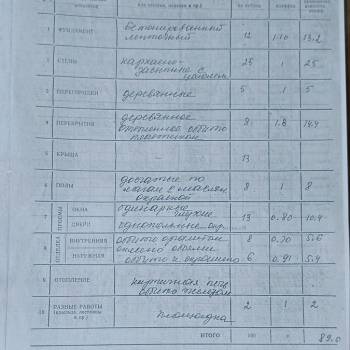 1 ФУНДАМЕНТ бетонированный ленточный 12 1.10 13.2
2 СТЕНЫ каркасно- засыпные с 25 1 25
3 ПЕРЕГОРОДКИ деревянные 5 1 5
4 ПЕРЕКРЫТИЯ деревянное утепленное обито 8 1.8 14.4
5 КРЫША - 13
6 ПОЛЫ дощатые по лагам с маслян. окраской 8 1 8
7 ПРОЕМЫ ОКНА одинарные глухие
ДВЕРИ однопольные 13 0.80 10.4
8 ОТДЕЛКА ВНУТРЕННЯЯ обито оргалитом 8 0.70 5.6
НАРУЖНАЯ обито и окрашено 6 0.91 5.4
9 ОТОПЛЕНИЕ кирпичная печь обито
10 РАЗНЫЕ РАБОТЫ (крыльца, лестницы и пр.) площадка 2 1 2
ИТОГО 100 x 89.0